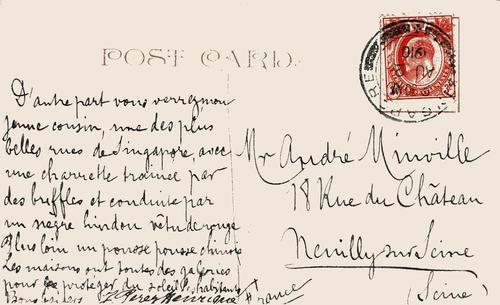 POST CARD
D'autre part vous verrez mon
jeune cousin, une des plus
belles rues de Singapore, avec
une charrette trainée par
des buffles et conduite par
un negre hindou vêtu de rouge
Plus loin un pousse pousse chinois
Les maisons ont toutes des galeries
pour protéger du soleil habitants
Bons baisers
Mr André Minville
18 Rue du Château
Neuilly sur Seine
France (Seine)
SINGAPORE
AU
1910